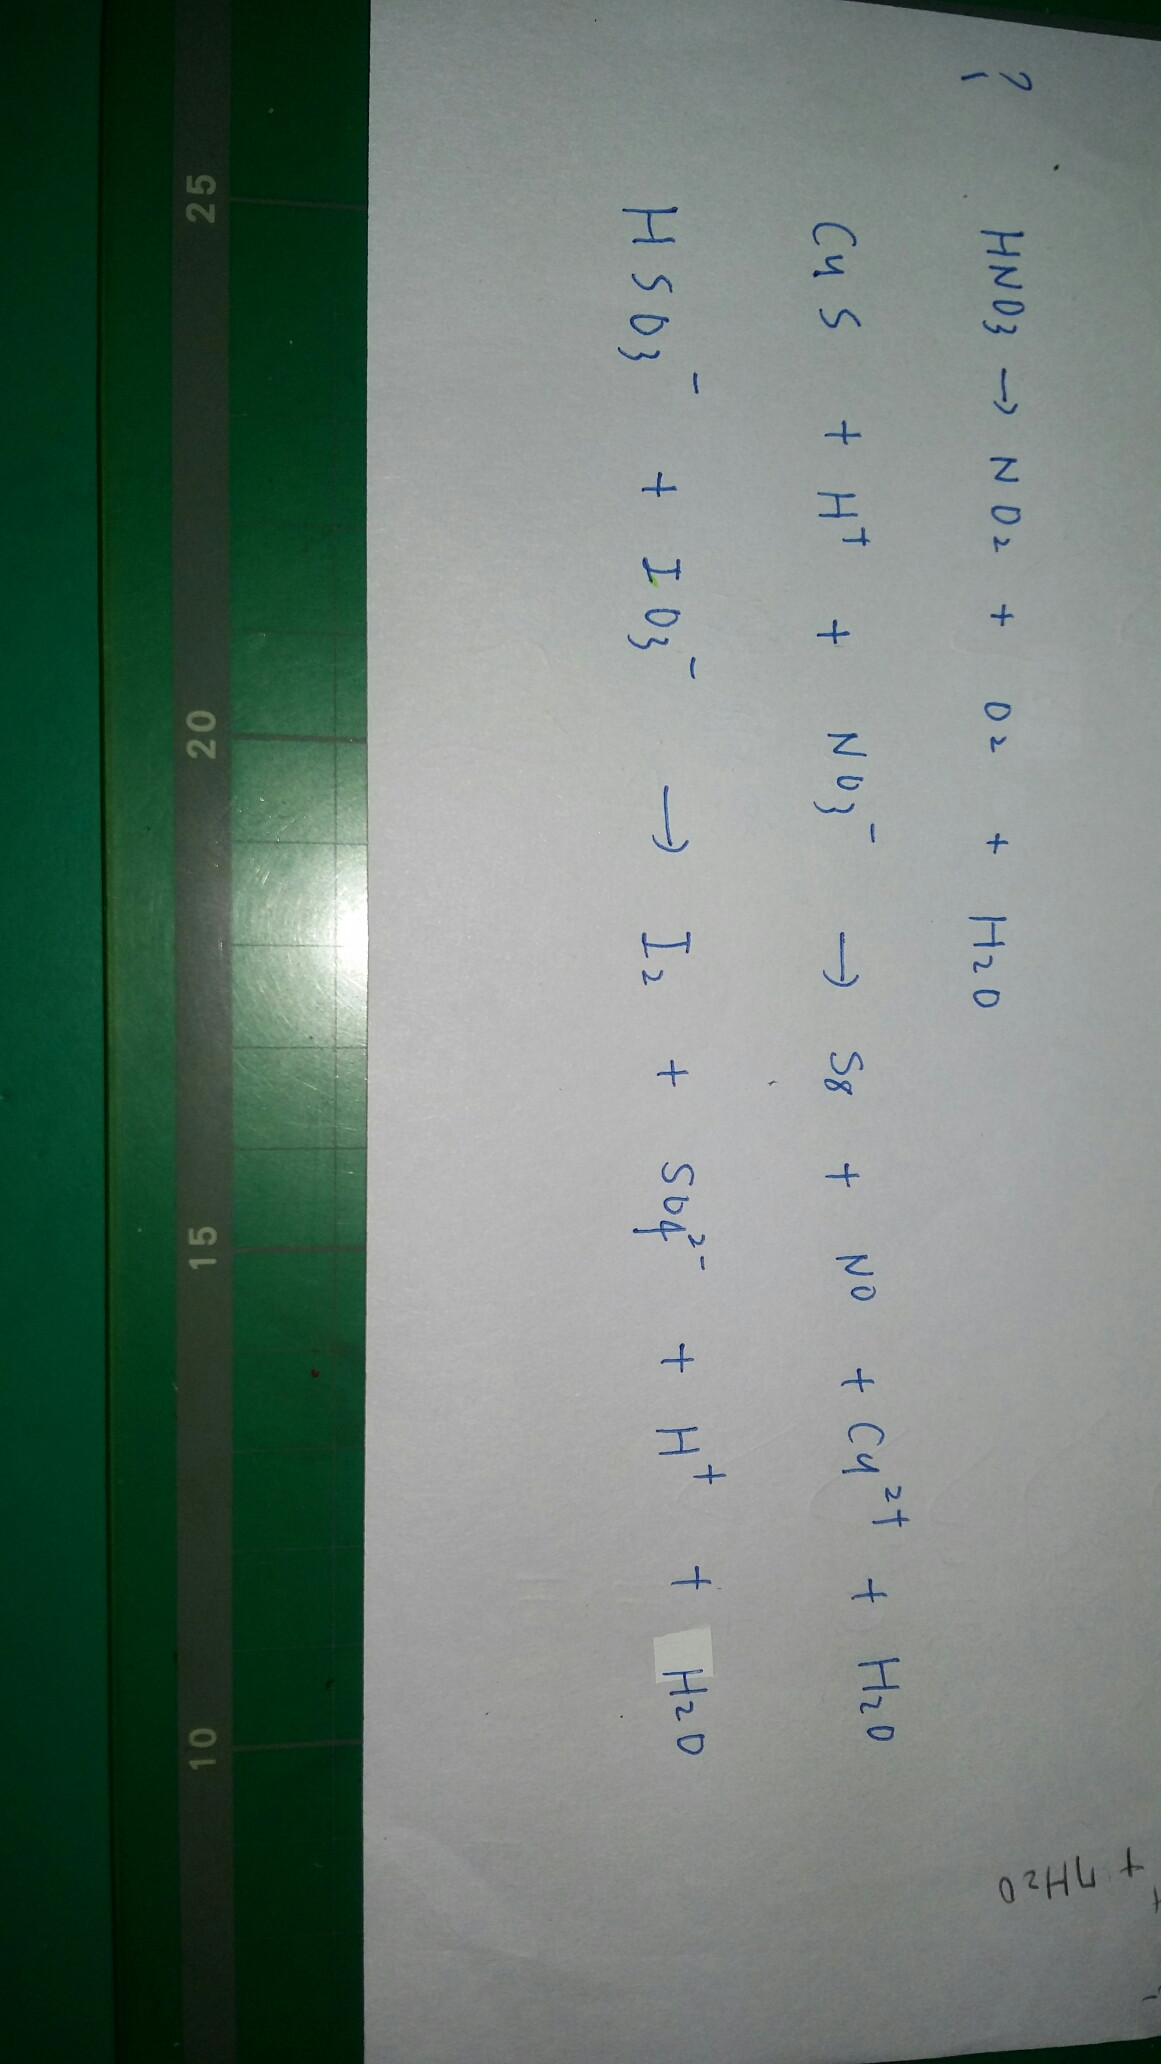 ?
HNO₃ → NO₂ + O₂ + H₂O
CuS + H⁺ + NO₃⁻ → S₈ + NO + Cu²⁺ + H₂O
HSO₃⁻ + IO₃⁻ → I₂ + SO₄²⁻ + H⁺ + H₂O
25 20 15 10